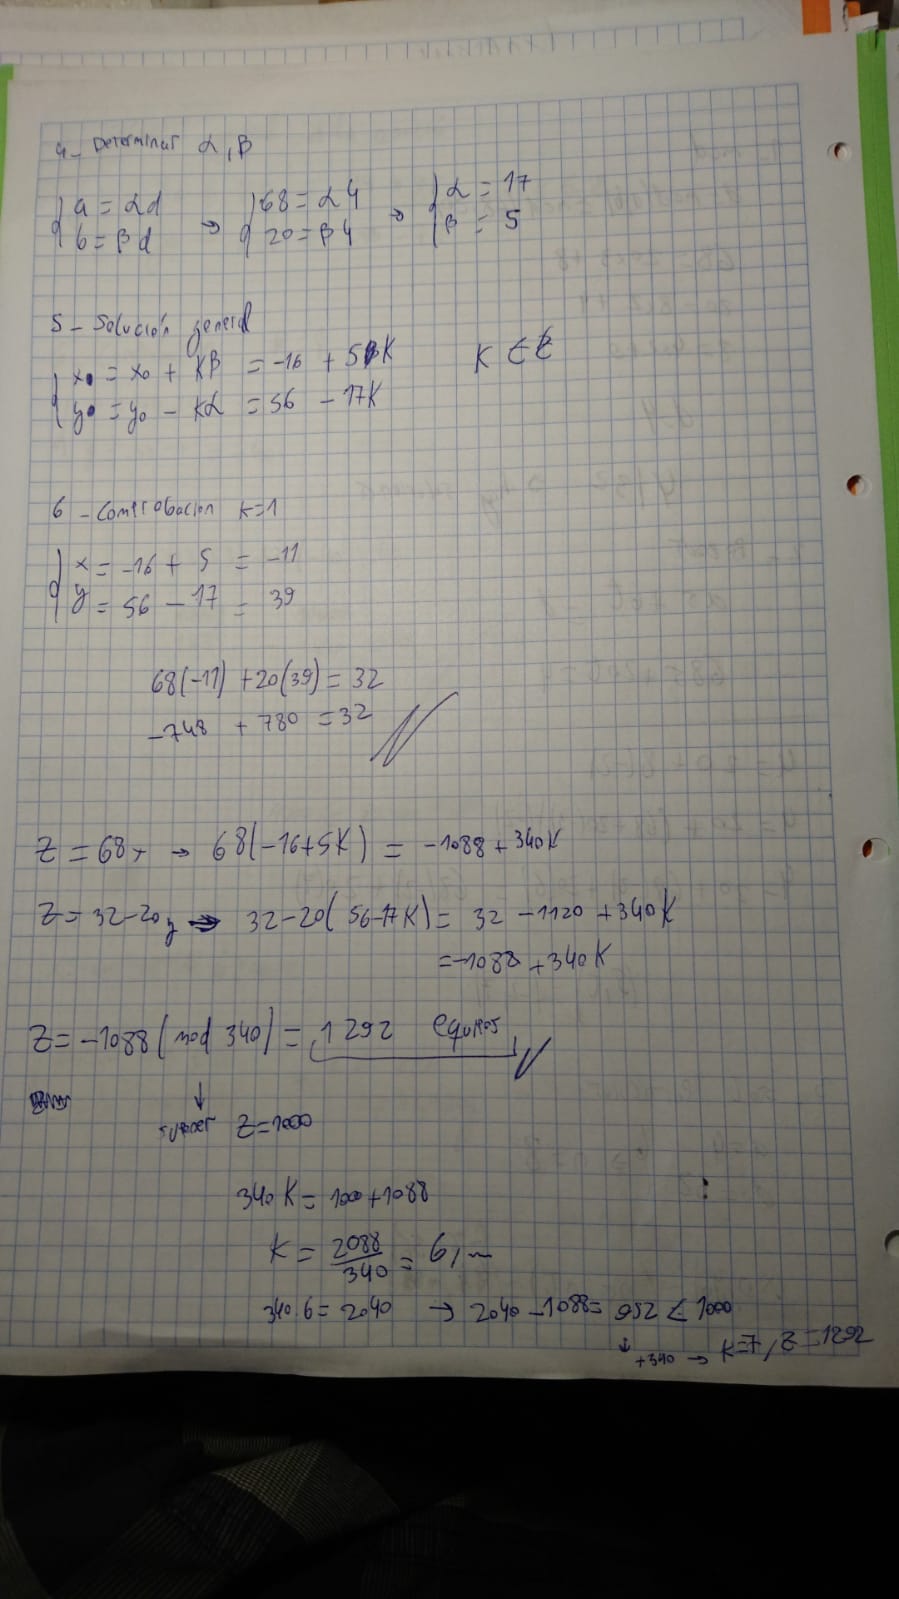 4 - Determinar α, β
{ a = αd → { 68 = α4 → { α = 17
b = βd 20 = β4 β = 5
5 - Solución general
{ x = x₀ + Kβ = -16 + 5K K ∈ ℤ
y = y₀ - Kα = 56 - 17K
6 - Comprobacion K=1
{ x = -16 + 5 = -11
y = 56 - 17 = 39
68(-11) + 20(39) = 32
-748 + 780 = 32
Z = 68x → 68(-16+5K) = -1088 + 340K
Z = 32-20y → 32-20(56-17K) = 32 - 1120 + 340K
= -1088 + 340K
Z = -1088 (mod 340) = 1292 equipos
↓
Z=1000
340K = 1000+1088
K = 2088/340 = 6,
340·6 = 2040 → 2040 - 1088 = 952 < 1000
↓ +340 → K=7, Z=1292